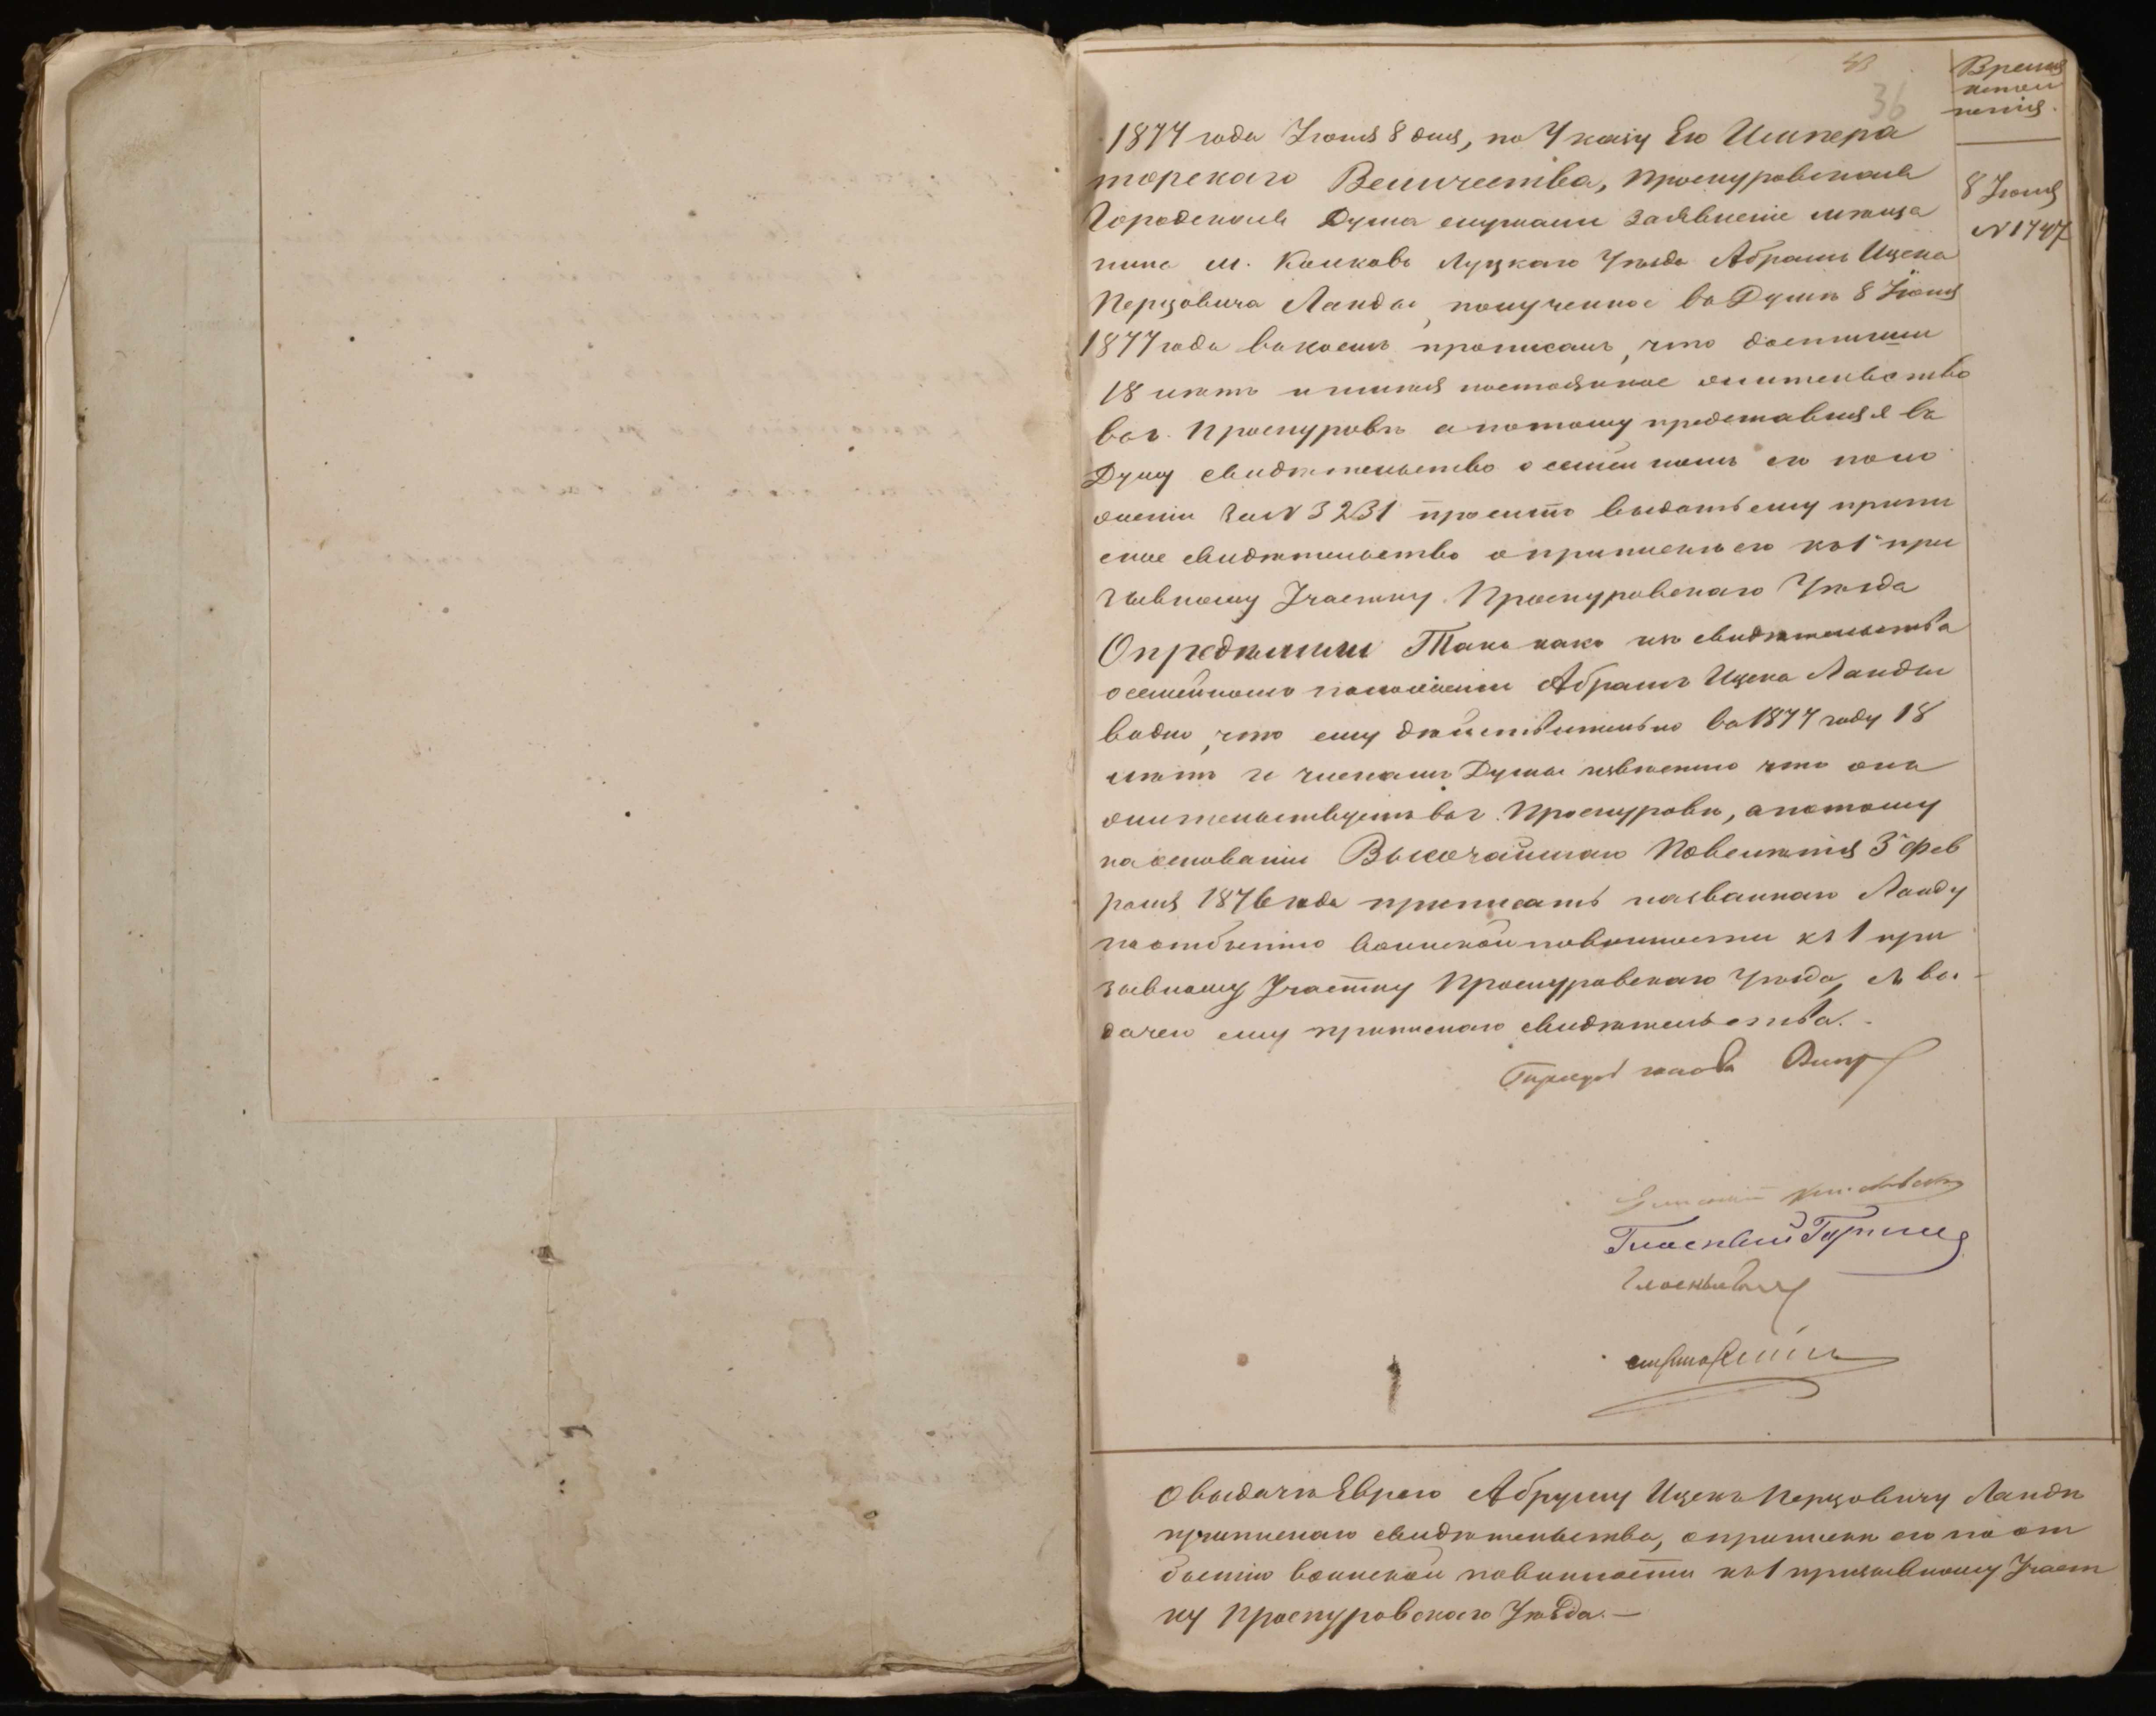 36
Время
испол
ненія.
8 Іюня
№ 1747
1877 года Іюня 8 дня, по Указу Его Импера
торскаго Величества, Проскуровская
Городская Дума слушали заявленіе мѣща
нина м. Колковъ Луцкаго Уѣзда Абрамъ Ицека
Перцовича Ланды, полученное въ Думѣ 8 Іюня
1877 года въ коемъ прописалъ, что достигши
18 лѣтъ и имѣя постоянное жительство
въ г. Проскуровѣ а потому представляя въ
Думу свидѣтельство о семейномъ его поло
женіи за № 3231 проситъ выдать ему припи
сное свидѣтельство о припискѣ его къ 1 при
зывному Участку Проскуровскаго Уѣзда
Опредѣлили Такъ какъ изъ свидѣтельства
о семейномъ положеніи Абрамъ Ицека Ланды
видно, что ему дѣйствительно въ 1877 году 18
лѣтъ и гласнымъ Думы извѣстно что онъ
жительствуетъ въ г. Проскуровѣ, а потому
на основаніи Высочайшаго Повелѣнія 3 Фев
раля 1876 года приписать названнаго Ланду
по отбытію воинской повинности къ 1 при
зывному Участку Проскуровскаго Уѣзда, съ вы-
дачею ему приписнаго свидѣтельства.
голова
Гласный
Гласный
О выдачѣ Еврею Абраму Ицекѣ Перцовичу Ландѣ
приписнаго свидѣтельства, о припискѣ его по от
бытію воинской повинности къ 1 призывному Участ
ку Проскуровскаго Уѣзда.—